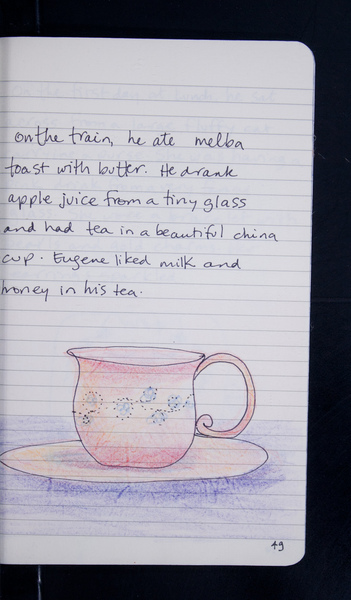 on the train, he ate melba
toast with butter. He drank
apple juice from a tiny glass
and had tea in a beautiful china
cup. Eugene liked milk and
honey in his tea.
49